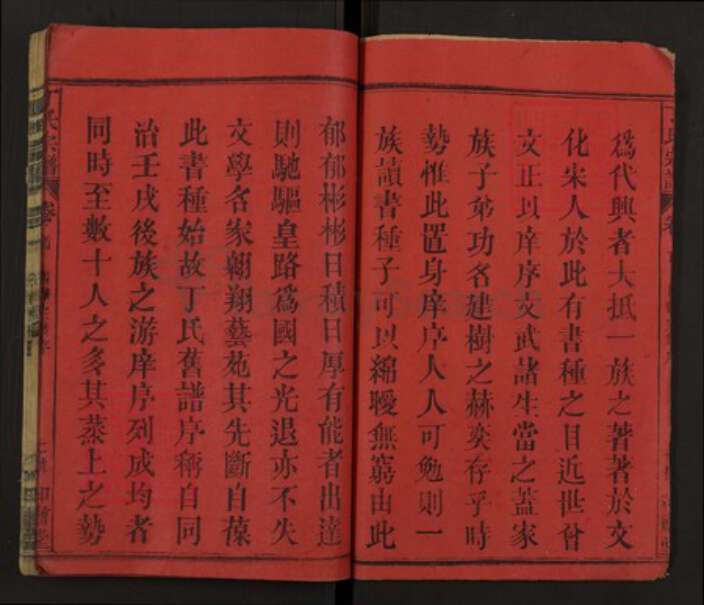 為代興者大抵一族之著著於文
化宋人於此有書種之目近世曾
文正以庠序文武諸生當之蓋家
族子弟功名建樹之赫奕存乎時
勢惟此置身庠序人人可勉則一
族讀書種子可以綿曖無窮由此
郁郁彬彬日積日厚有能者出達
則馳驅皇路為國之光退亦不失
文學名家翱翔藝苑其先斷自葆
此書種始故丁氏舊譜序稱自同
治壬戌後族之游庠序列成均者
同時至數十人之多其蒸上之勢